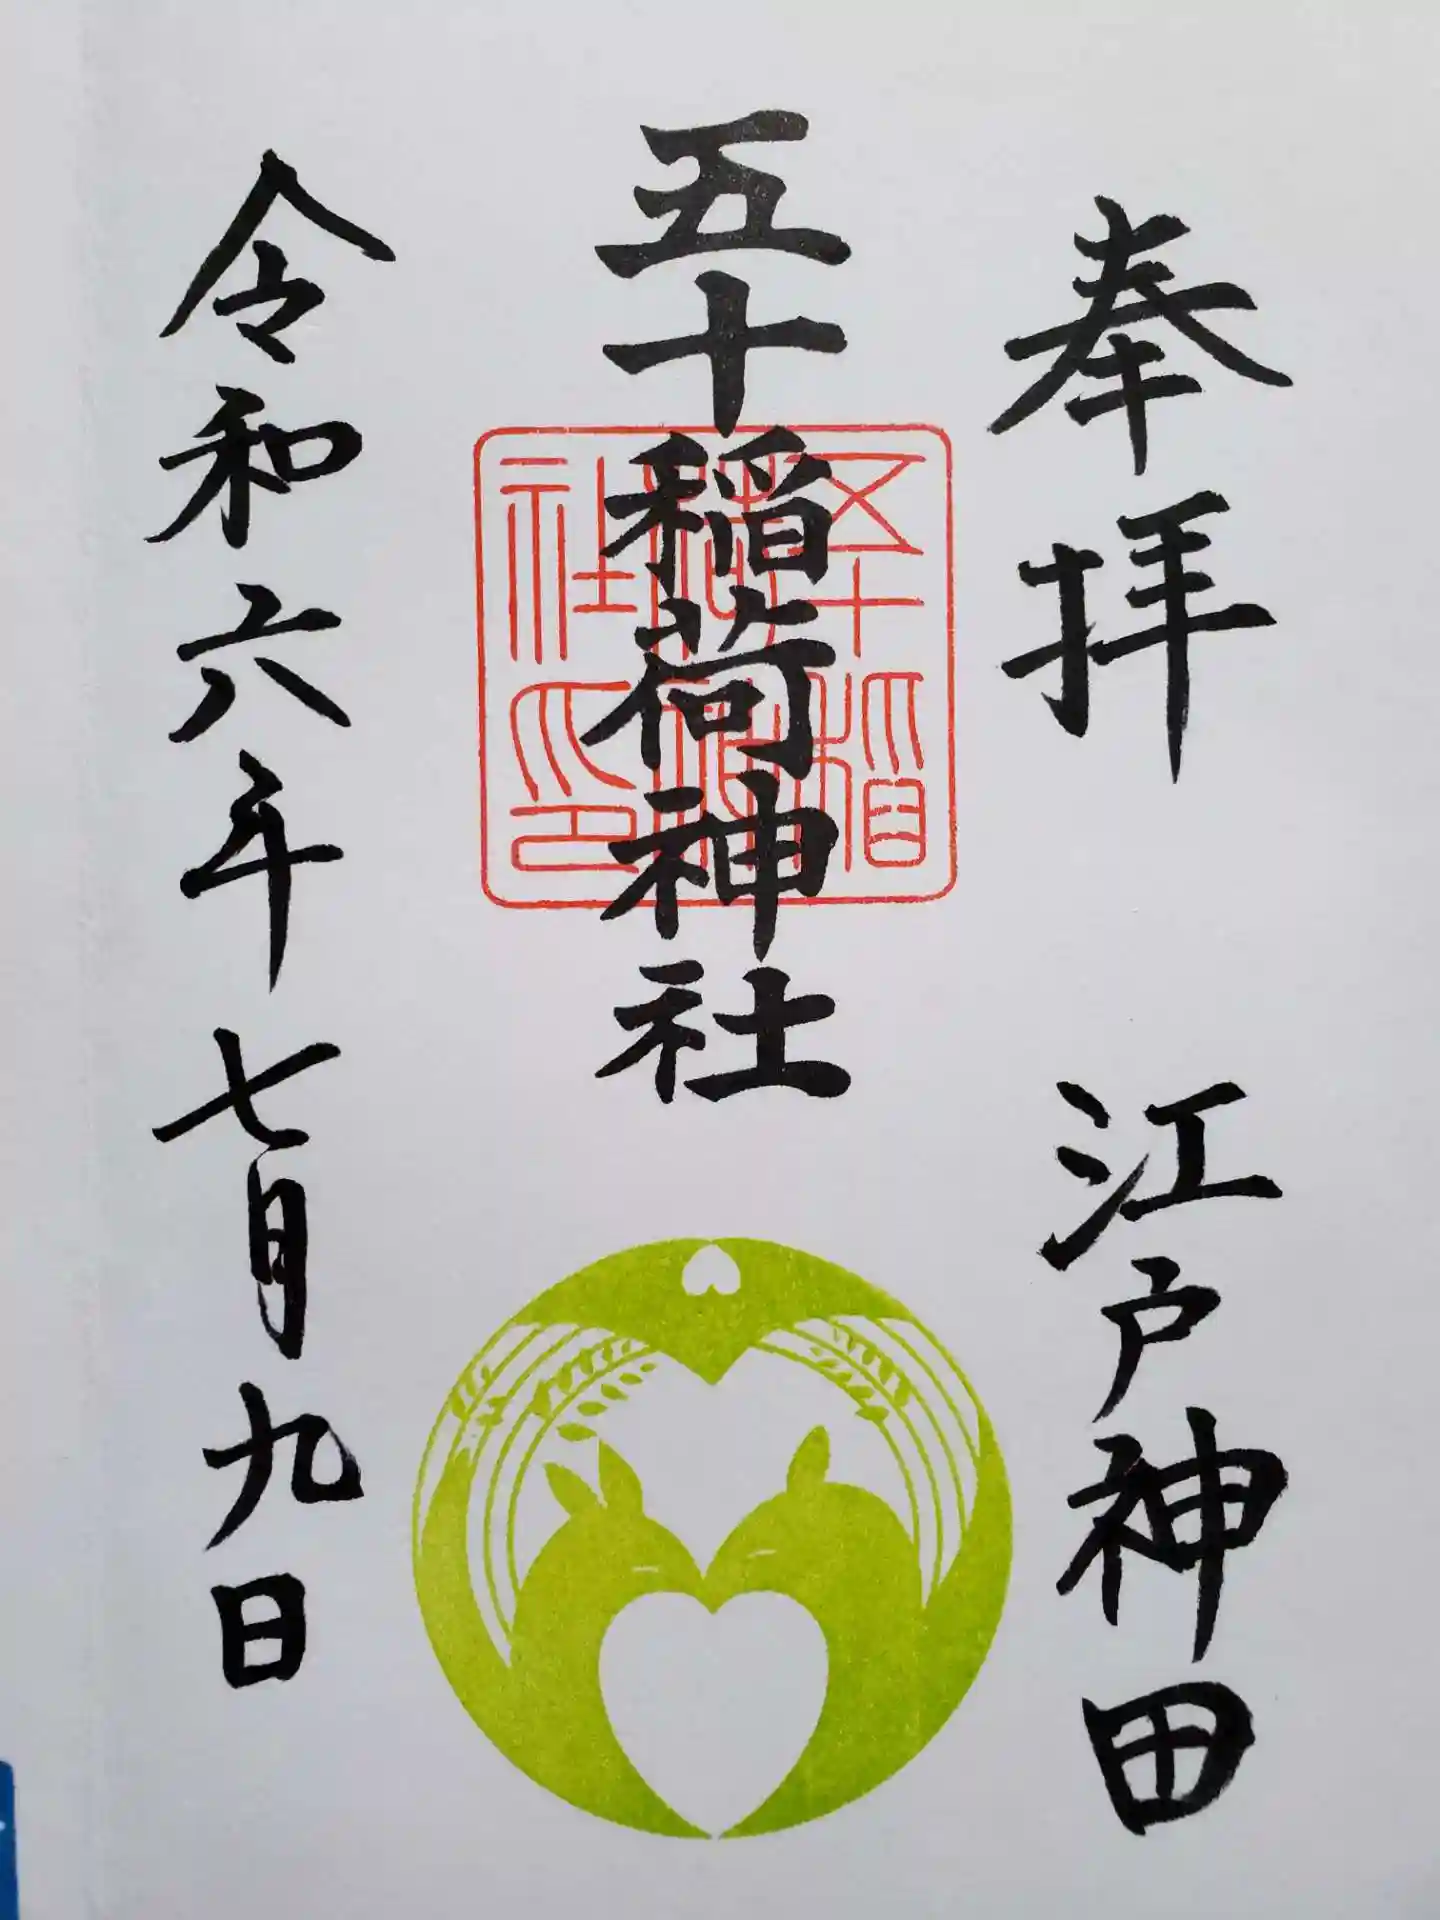 奉拝 江戸神田
五十稲荷神社
五十稲
荷神
社印
令和六年七月九日